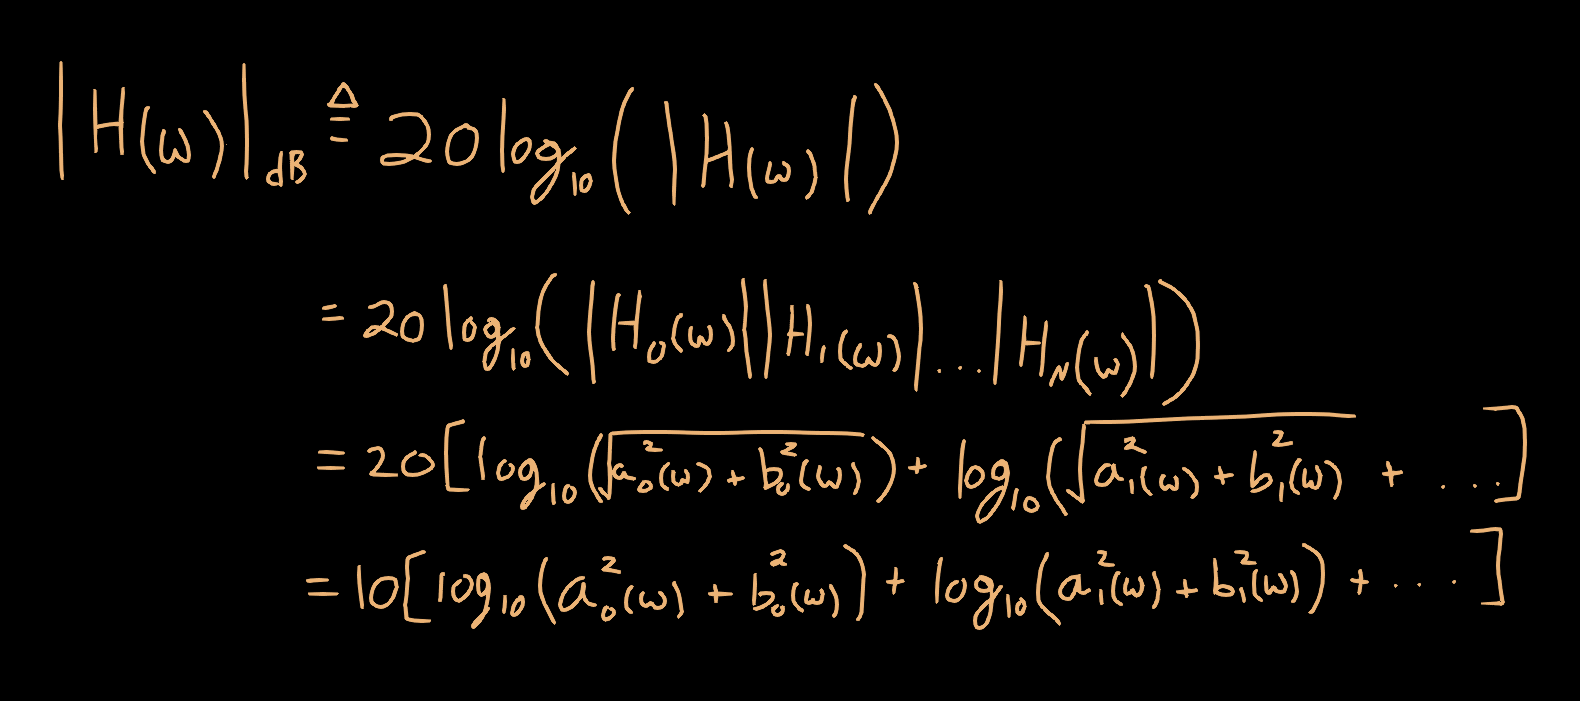 |H(ω)|_dB ≜ 20 log₁₀(|H(ω)|)
= 20 log₁₀(|H₀(ω)||H₁(ω)|...|H_N(ω)|)
= 20[log₁₀(√(a₀²(ω) + b₀²(ω))) + log₁₀(√(a₁²(ω) + b₁²(ω)) + ...]
= 10[log₁₀(a₀²(ω) + b₀²(ω)) + log₁₀(a₁²(ω) + b₁²(ω)) + ....]